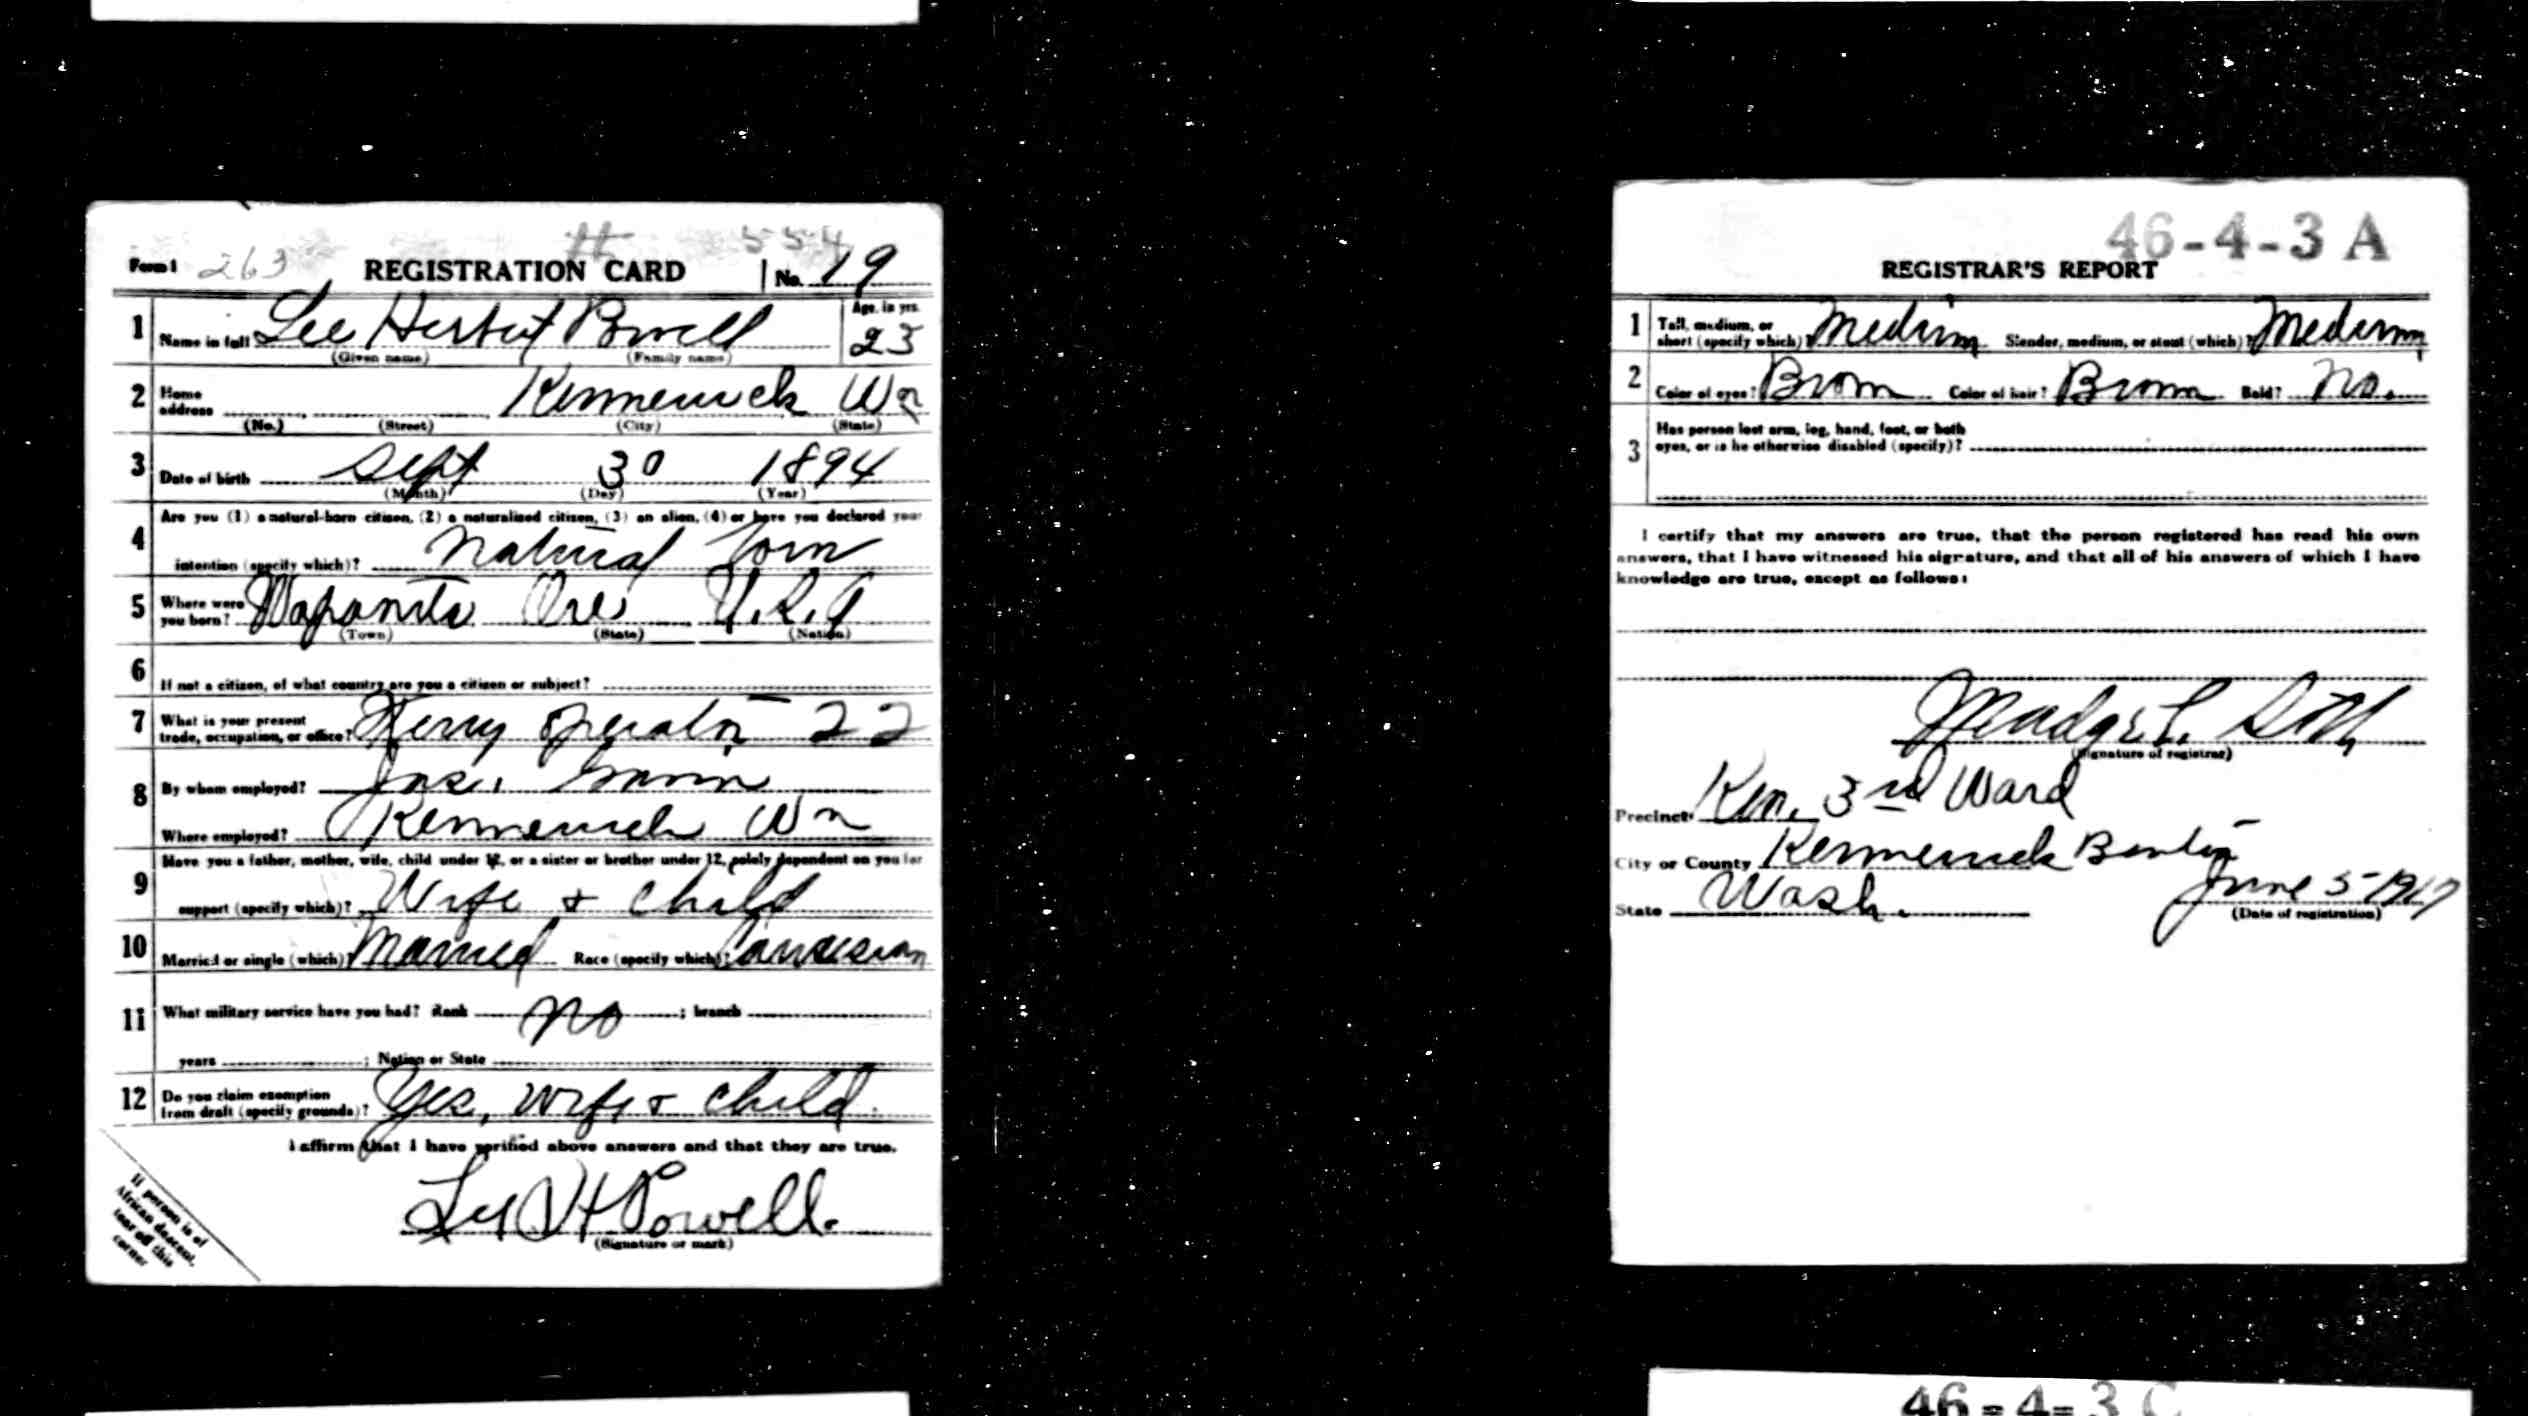 Form 1 263 REGISTRATION CARD No. 19
554
1 Name in full Lee Herbert Powell Age, in yrs. 23
(Given name) (Family name)
2 Home address Kennewick Wn
(No.) (Street) (City) (State)
3 Date of birth Sept 30 1894
(Month) (Day) (Year)
4 Are you (1) a natural-born citizen, (2) a naturalized citizen, (3) an alien, (4) or have you declared your
intention (specify which)? Natural born
5 Where were you born? Wapanita Ore U.S.A
(Town) (State) (Nation)
6 If not a citizen, of what country are you a citizen or subject?
7 What is your present trade, occupation, or office? Ferry operator 22
8 By whom employed?
Where employed? Kennewick Wn
9 Have you a father, mother, wife, child under 12, or a sister or brother under 12, solely dependent on you for
support (specify which)? Wife + child
10 Married or single (which)? Married Race (specify which)? Caucasian
11 What military service have you had? Rank no ; branch
years ; Nation or State
12 Do you claim exemption from draft (specify grounds)? Yes, wife + child
I affirm that I have verified above answers and that they are true.
Lee H Powell.
(Signature or mark)
If person is of
African descent,
tear off this
corner
46-4-3 A
REGISTRAR'S REPORT
1 Tall, medium, or short (specify which)? Medium Slender, medium, or stout (which)? Medium
2 Color of eyes? Brown Color of hair? Brown Bald? No.
3 Has person lost arm, leg, hand, foot, or both
eyes, or is he otherwise disabled (specify)?
I certify that my answers are true, that the person registered has read his own
answers, that I have witnessed his signature, and that all of his answers of which I have
knowledge are true, except as follows:
(Signature of registrar)
Precinct Ken. 3rd Ward
City or County Kennewick Benton
State Wash. June 5-1917
(Date of registration)
46-4-3 C